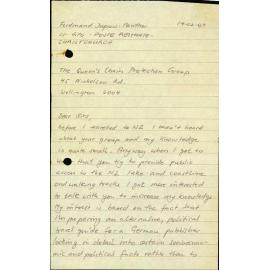 Ferdinand
c/- GPO - POSTE RESTANTE -
CHRISTCHURCH
The Queen's Chain Protection Group
45 Nicholson Rd.
Wellington 6004
Dear Sirs,
before I travelled to NZ I hadn't heard
about your group and my knowledge
is quite small. Anyway when I got to
that you try to provide public
access to the NZ lake and coastline
and walking tracks I got more interested
to talk with you to increase my knowledge.
My interest is based on the fact that
I'm preparing an alternative, political
travel guide for a German publisher
looking in detail into certain
mic and political facts rather than to